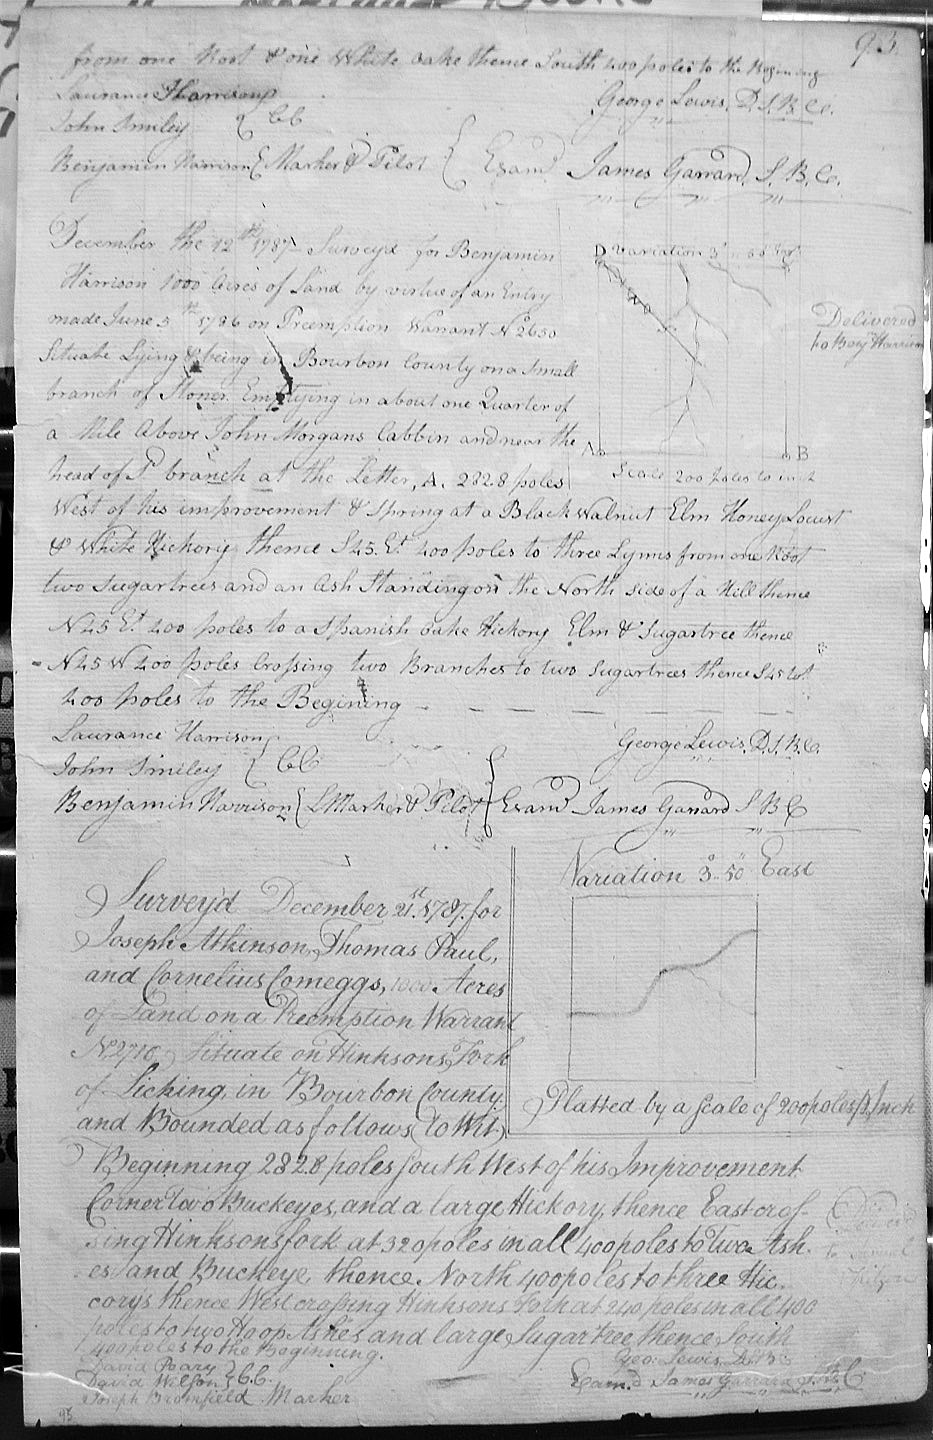 93.
from one Root & one White oake thence South 400 poles to the Begining
Laurance Harrison
John Smiley } CC
George Lewis, D.S.B.Co.
Benjamin Harrison { Marker & Pilot { Exam'd James Garrard, S. B. Co.
December the 12th 1787 Survey'd for Benjamin
Harrison 1000 Acres of Land by virtue of an Entry
made June 5th 1786 on Preemption Warrant No 2650
Situate Lying & being in Bourbon County on a Small
branch of Stoner Emptying in about one Quarter of
a Mile Above John Morgans Cabbin and near the
head of Sd branch at the Letter, A. 282.8 poles
West of his improvement & Spring at a Black Walnut Elm Honey Locust
& White Hickory thence S45. Et. 400 poles to three Lynns from one Root
two Sugartrees and an Ash Standing on the North Side of a Hill thence
N45 Et. 400 poles to a Spanish oake Hickory Elm & Sugartree thence
N45 W 400 poles Crossing two Branches to two Sugartrees thence S45 Wt
400 poles to the Begining
D Variation 3
A B
Scale 200 poles to inch
Delivered
to Benj Harrison
Laurance Harrison
John Smiley } CC
George Lewis, D.S.B.Co.
Benjamin Harrison { Marker & Pilot { Exam'd James Garrard S B C
Survey'd December 21st 1787. for
Joseph Atkinson, Thomas Paul,
and Cornelius Comeggs, 1000 Acres
of Land on a Preemption Warrant
No 2710 Situate on Hinksons Fork
of Licking, in Bourbon County
and Bounded as follows (to Wit)
Variation 3° 50" East
Platted by a Scale of 200 poles p. Inch
Beginning 282.8 poles South West of his Improvement
Corner two Buckeyes, and a large Hickory, thence East cros-
sing Hinksons fork at 320 poles in all 400 poles to Two Ash-
es and Buckeye, thence North 400 poles to three Hic-
corys thence West crossing Hinksons Fork at 240 poles in all 400
poles to two Hoop Ashes and large Sugar tree thence South
400 poles to the Beginning.
to Samuel
David Peary
David Wilson } C.C.
Joseph Bromfield Marker
Geo: Lewis D.S.B.C
Exam.d James Garrard S.B.C.
93